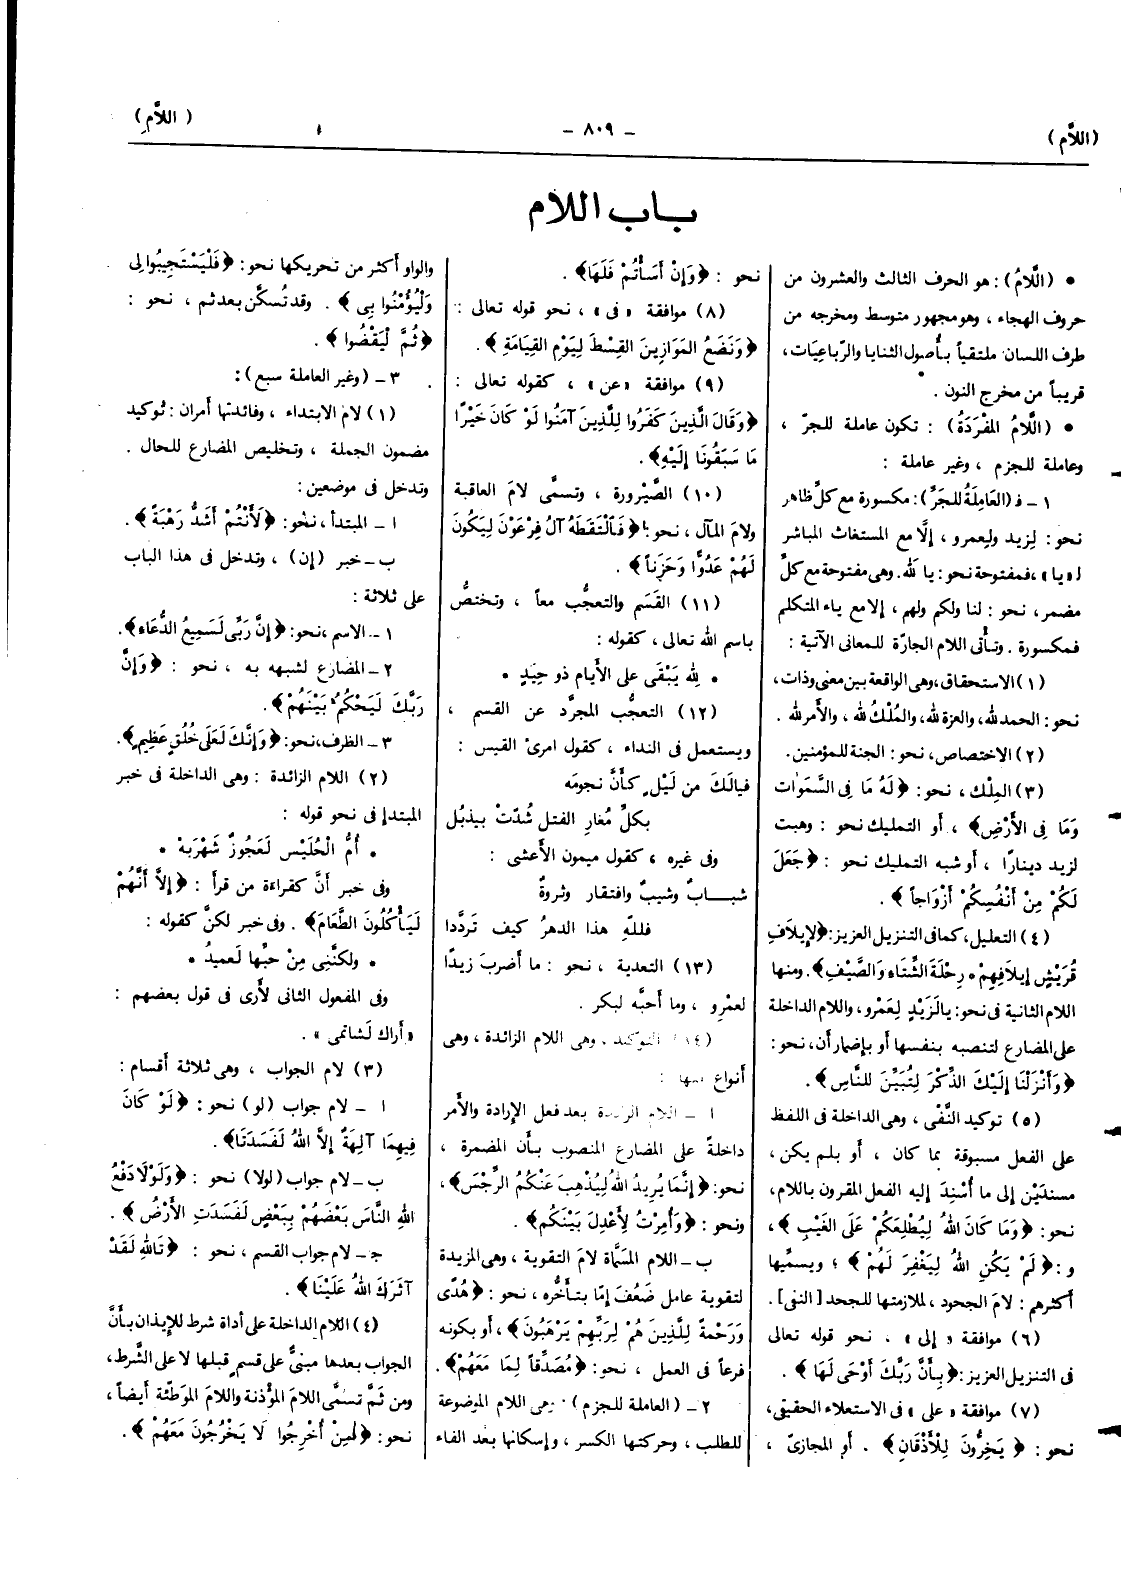 (اللاَّم)
– ٨٠٩ –
( اللاَّم)
بـاب اللام
• (اللَّامُ) : هو الحرف الثالث والعشرون من
حروف الهجاء ، وهو مجهور متوسط ومخرجه من
طرف اللسان ملتقياً بأُصول الثنايا والرّباعيَات،
قريباً من مخرج النون .
• (اللَّامُ المُفْرَدَةُ) : تكون عاملة للجرّ ،
وعاملة للجزم ، وغير عاملة :
١ – فـ (العَامِلَةُ للجَرِّ): مكسورة مع كلِّ ظاهر
نحو: لِزيد ولِعمرو ، إلَّا مع المستغاث المباشر
لـ «يا» ، فمفتوحة نحو: يا لَلّه. وهى مفتوحة مع كلِّ
مضمر، نحو : لنا ولكم ولهم ، إلا مع ياء المتكلم
فمكسورة . وتأْتى اللام الجارّة للمعانى الآتية :
(١) الاستحقاق، وهى الواقعة بين معنى وذات،
نحو: الحمد لله، والعزة لله، والمُلْكُ لله ، والأَمر لله .
(٢) الاختصاص، نحو: الجنة للمؤمنين.
(٣) المِلْك ، نحو: ﴿لَهُ مَا فِى السَّمَوٰات
وَمَا فِى الأَرْضِ﴾ ، أو التمليك نحو : وهبت
لزيد دينارًا ، أو شبه التمليك نحو : ﴿جَعَلَ
لَكُمْ مِنْ أَنْفُسِكُمْ أَزْوَاجاً﴾ .
(٤) التعليل، كما فى التنزيل العزيز: ﴿لإِيلاَفِ
قُرَيْشٍ إِيلاَفِهِمْ • رِحْلَةَ الشِّتَاءِ وَالصَّيْفِ﴾. ومنها
اللام الثانية فى نحو: يا لَزَيْدٍ لِعَمْرو، واللام الداخلة
على المضارع لتنصبه بنفسها أو بإضمار أن، نحو:
﴿وَأَنْزَلْنَا إِلَيْكَ الذِّكْرَ لِتُبَيِّنَ لِلنَّاسِ﴾ .
(٥) توكيد النَّفْى ، وهى الداخلة فى اللفظ
على الفعل مسبوقة بما كان ، أو بلم يكن ،
مسندَيْن إلى ما أُسْنِدَ إليه الفعل المقرون باللام،
نحو: ﴿وَمَا كَانَ اللهُ لِيُطْلِعَكُمْ عَلَى الغَيْبِ ﴾ ،
و : ﴿لَمْ يَكُنِ اللهُ لِيَغْفِرَ لَهُمْ ﴾ ؛ ويسمِّيها
أكثرهم : لامَ الجحود ، لملازمتها للجحد [النفى] .
(٦) موافقة « إلى » . نحو قوله تعالى
فى التنزيل العزيز: ﴿بِأَنَّ رَبَّكَ أَوْحَى لَهَا ﴾ .
(٧) موافقة «على » فى الاستعلاء الحقيقى،
نحو : ﴿ يَخِرُّونَ لِلْأَذْقَانِ﴾ . أو المجازىّ ،
نحو : ﴿وَإِنْ أَسَأْتُمْ فَلَهَا﴾ .
(٨) موافقة «فى» ، نحو قوله تعالى :
﴿وَنَضَعُ المَوَازِينَ القِسْطَ لِيَوْمِ القِيَامَةِ ﴾.
(٩) موافقة «عن» ، كقوله تعالى :
﴿وَقَالَ الَّذِينَ كَفَرُوا لِلَّذِينَ آمَنُوا لَوْ كَانَ خَيْرًا
مَا سَبَقُونَا إِلَيْهِ﴾.
(١٠) الصَّيْرورة ، وتسمَّى لامَ العاقبة
ولامَ المآل ، نحو: ﴿فَالْتَقَطَهُ آلُ فِرْعَوْنَ لِيَكُونَ
لَهُمْ عَدُوًّا وَحَزَناً﴾ .
(١١) القَسَم والتعجُّب معاً ، وتختصُّ
باسم الله تعالى ، كقوله :
• لِلّهِ يَبْقَى على الأَيام ذو حِيَدٍ •
(١٢) التعجُّب المجرَّد عن القسم ،
ويستعمل فى النداء ، كقول امرئ القيس :
فيالَكَ من لَيْلٍ كأَنَّ نجومَه
بكلِّ مُغارِ الفتل شُدّتْ بيذبُل
وفى غيره ، كقول ميمون الأَعشى :
شبـــابٌ وشيبٌ وافتقار وثروةٌ
فللهِ هذا الدهرُ كيف تَردَّدا
(١٣) التعدية ، نحو : ما أضربَ زيدًا
لعمْرو ، وما أحبَّه لبكر .
(١٤) التوكيد . وهى اللام الزائدة ، وهى
أنواع منها :
ا – اللام الزائدة بعد فعل الإرادة والأَمر
داخلةً على المضارع المنصوب بأن المضمرة ،
نحو: ﴿إِنَّمَا يُرِيدُ اللهُ لِيُذْهِبَ عَنْكُمُ الرِّجْسَ﴾،
ونحو : ﴿وَأُمِرْتُ لِأَعْدِلَ بَيْنَكُمُ﴾ .
ب – اللام المسمَّاة لامَ التقوية ، وهى المزيدة
لتقوية عامل ضَعُفَ إمّا بتأَخُّره ، نحو : ﴿هُدًى
وَرَحْمَةً لِلَّذِينَ هُمْ لِرَبِّهِمْ يَرْهَبُونَ﴾ ، أو بكونه
فرعاً فى العمل ، نحو: ﴿مُصَدِّقاً لِمَا مَعَهُمْ﴾ .
٢ – (العاملة للجزم) وهى اللام الموضوعة
للطلب ، وحركتها الكسر ، وإسكانها بعد الفاء
والواو أكثر من تحريكها نحو: ﴿فَلْيَسْتَجِيبُوا لِى
وَلْيُؤْمِنُوا بِى ﴾ . وقد تُسكَّن بعد ثم ، نحو :
﴿ثُمَّ لْيَقْضُوا ﴾ .
٣ – (وغير العاملة سبع) :
(١) لام الابتداء ، وفائدتها أمران : توكيد
مضمون الجملة ، وتخليص المضارع للحال .
وتدخل فى موضعين :
ا – المبتدأ ، نحو: ﴿لَأَنْتُمْ أَشَدُّ رَهْبَةً﴾ .
ب – خبر (إن) ، وتدخل فى هذا الباب
على ثلاثة :
١ – الاسم ، نحو: ﴿إِنَّ رَبِّى لَسَمِيعُ الدُّعَاء﴾.
٢ – المضارع لشبهه به ، نحو : ﴿وَإِنَّ
رَبَّكَ لَيَحْكُمُ بَيْنَهُمْ﴾.
٣ – الظرف، نحو: ﴿وَإِنَّكَ لَعَلَى خُلُقٍ عَظِيمٍ﴾.
(٢) اللام الزائدة : وهى الداخلة فى خبر
المبتدإ فى نحو قوله :
• أُمُّ الْحُلَيْس لَعَجُوزٌ شَهْرَبَهْ •
وفى خبر أنَّ كقراءة من قرأ : ﴿إِلاَّ أَنَّهُمْ
لَيَأْكُلُونَ الطَّعَامَ﴾ . وفى خبر لكنَّ كقوله :
• ولكنَّنِى مِنْ حبِّها لَعميدُ •
وفى المفعول الثانى لأَرى فى قول بعضهم :
«أراك لَشاتمى» .
(٣) لام الجواب ، وهى ثلاثة أقسام :
ا – لام جواب (لو) نحو: ﴿لَوْ كَانَ
فِيهِمَا آلِهَةٌ إِلاَّ اللهُ لَفَسَدَتَا﴾ .
ب – لام جواب (لولا) نحو : ﴿وَلَوْلاَ دَفْعُ
اللهِ النَّاسَ بَعْضَهُمْ بِبَعْضٍ لَفَسَدَتِ الأَرْضُ﴾ .
جـ – لام جواب القسم ، نحو : ﴿تَاللهِ لَقَدْ
آثَرَكَ اللهُ عَلَيْنَا﴾ .
(٤) اللام الداخلة على أداة شرط للإيذان بأَنَّ
الجواب بعدها مبنىٌّ على قسم قبلها لا على الشَّرط،
ومن ثَمَّ تسمَّى اللامَ المؤْذنة واللامَ الموَطّئة أيضاً ،
نحو: ﴿لَئِنْ أُخْرِجُوا لَا يَخْرُجُونَ مَعَهُمْ ﴾ .